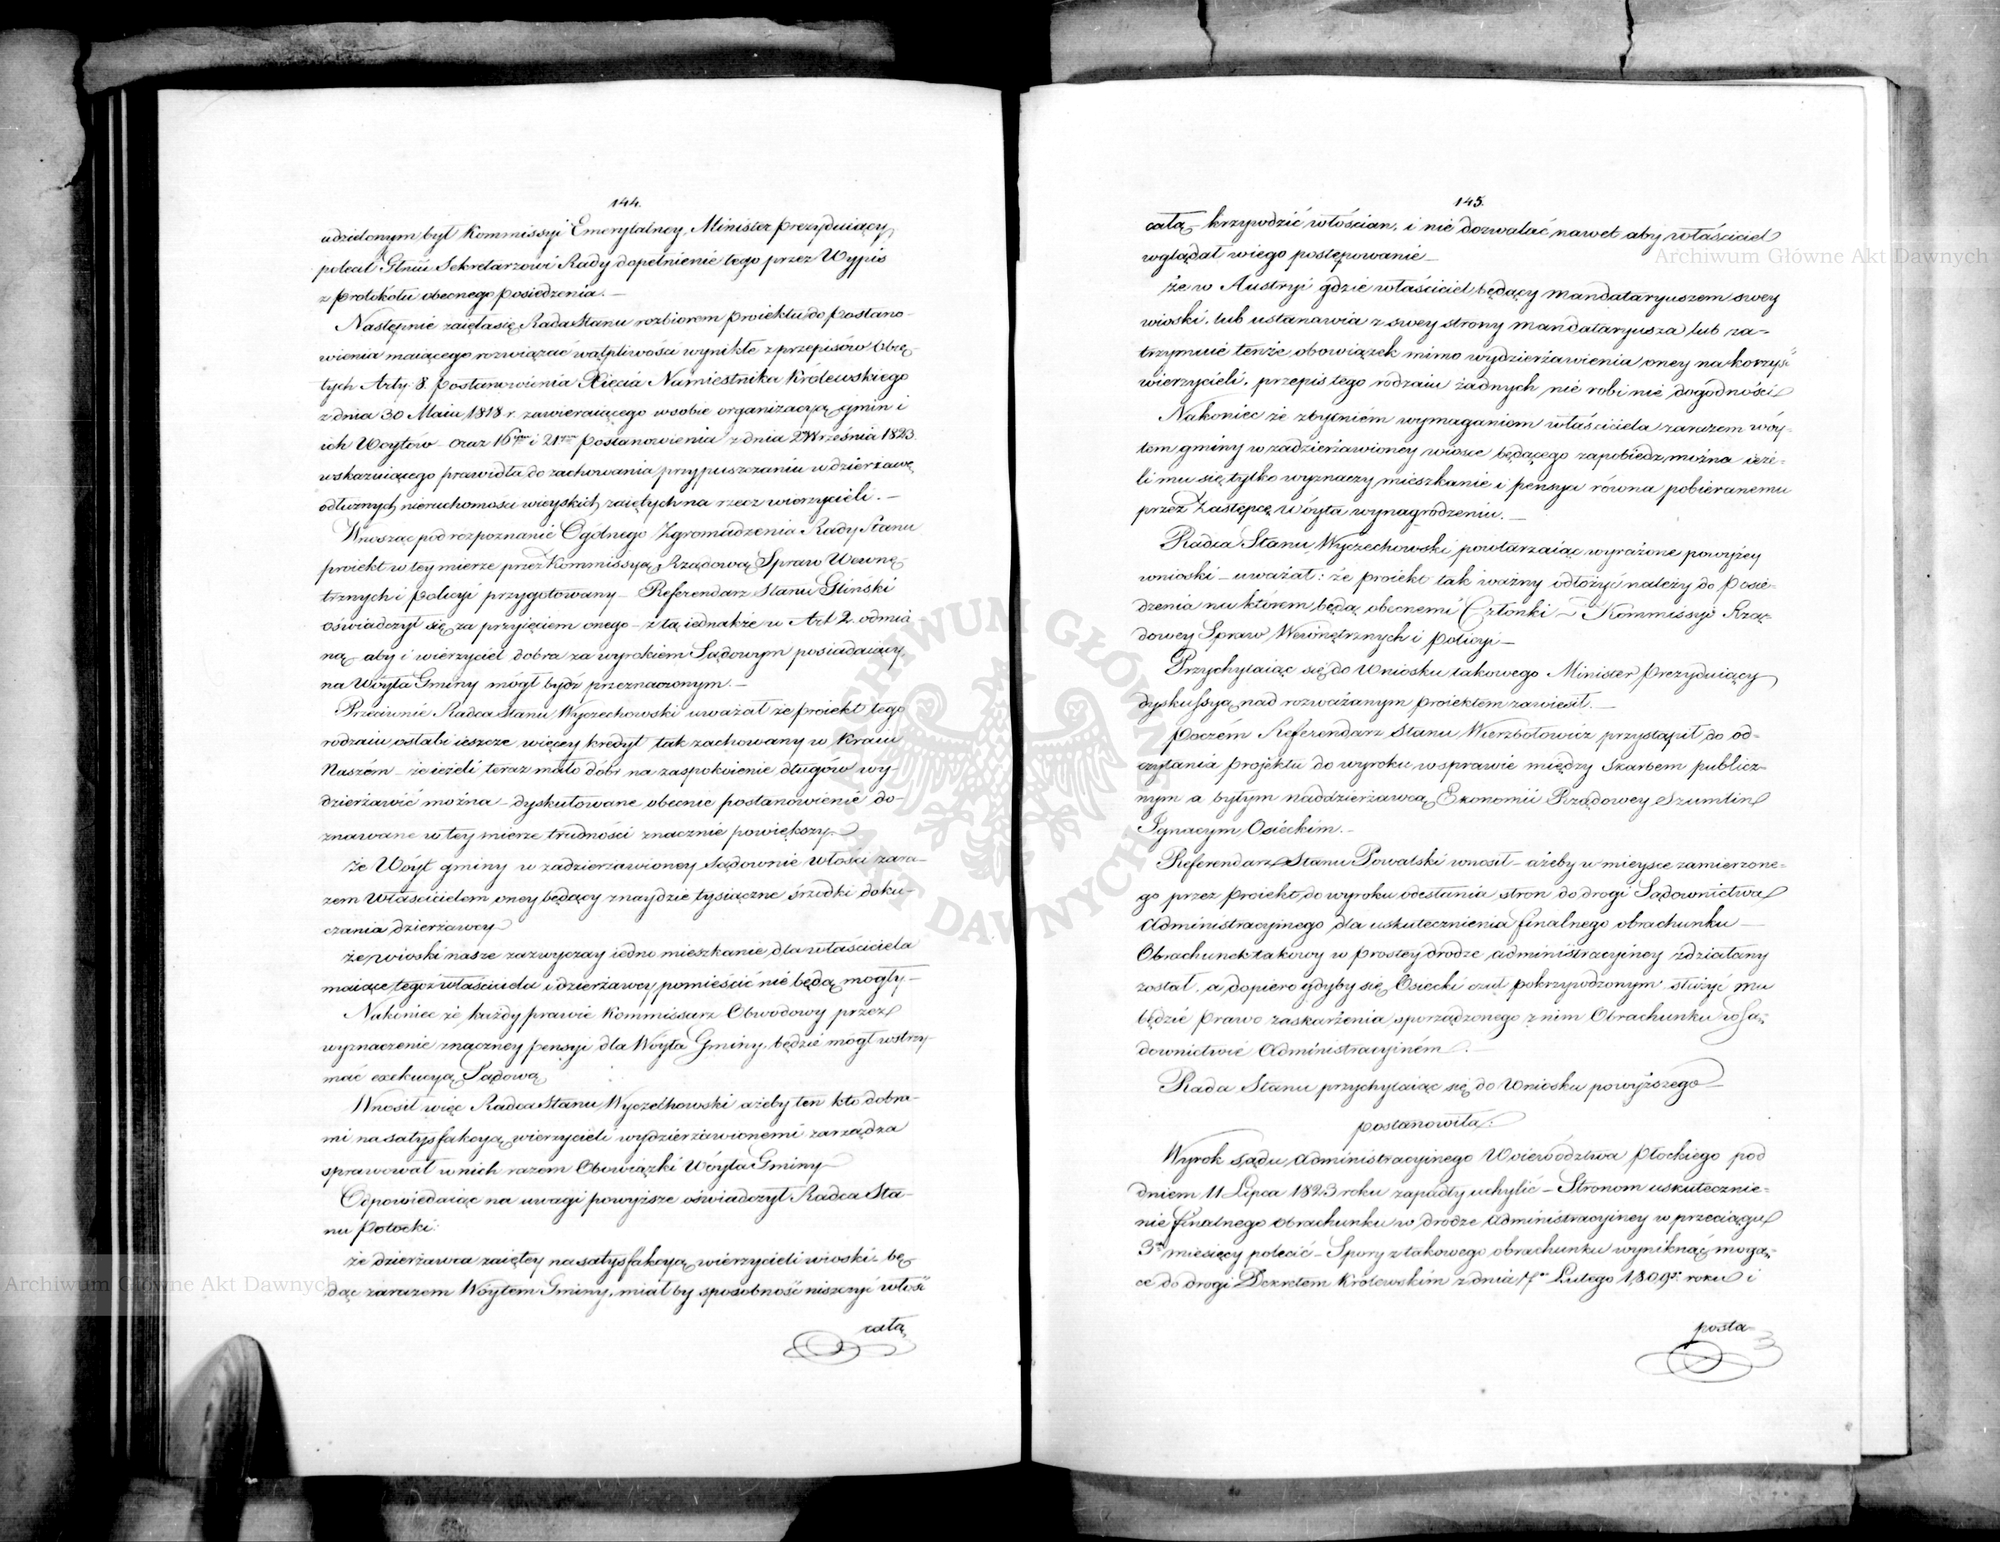 144.
udzielonym był Kommissyi Emerytalney, Minister Prezyduiący
polecał Głmu Sekretarzowi Rady dopełnienie tego przez Wypis
z Protokołu obecnego Posiedzenia. —
Następnie zaięła się Rada Stanu rozbiorem Proiektu do Postano-
wienia maiącego rozwiązać wątpliwości wynikłe z przepisów Obię-
tych Arty: 8. Postanowienia Xięcia Namiestnika Królewskiego
z dnia 30 Maiu 1818 r. zawieraiącego w sobie organizacyą gmin i
ich Woytów oraz 16go i 21go Postanowienia z dnia 2go Września 1823.
wskazuiącego prawidła do zachowania przy puszczaniu w dzierżawę
odłużnych nieruchomości wieyskich zaiętych na rzecz wierzycieli. —
Wnosząc pod rozpoznanie Ogólnego Zgromadzenia Rady Stanu
proiekt w tey mierze przez Kommissyą Rządową Spraw Wewnę-
trznych i Policyi przygotowany — Referendarz Stanu Gliński
oświadczył się za przyięciem onego — z tą iednakże w Art 2. odmia-
ną aby i wierzyciel dobra za wyrokiem Sądowym posiadaiący,
na Woyta Gminy mógł bydź przeznaczonym. —
Przeciwnie Radca Stanu Wyczechowski uważał że proiekt tego
rodzaiu osłabi ieszcze więcey kredyt tak zachowany w Kraiu
Naszém — że ieżeli teraz mało dóbr na zaspokoienie długów wy-
dzierżawić można — dyskutowane obecnie postanowienie do-
znawane w tey mierze trudności znacznie powiększy. —
że Wóyt gminy w zadzierżawioney Sądownie Włości zara-
zem Właścicielem oney będący znaydzie tysiączne środki doku-
czania dzierżawcy —
że wioski nasze zazwyczay iedno mieszkanie dla właściciela
maiące tegoż właściciela i dzierżawcy pomieścić nie będą mogły. —
Nakoniec że każdy prawie Kommissarz Obwodowy przez
wyznaczenie znaczney pensyi dla Woyta Gminy, będzie mógł wstrzy-
mać exekucyą Sądową
Wnosił więc Radca Stanu Wyczechowski ażeby ten kto dobra-
mi na satysfakcyą wierzycieli wydzierżawionemi zarządza
sprawował w nich razem Obowiązki Wóyta Gminy —
Odpowiedaiąc na uwagi powyższe oświadczył Radca Sta-
nu Potocki:
że dzierżawca zaiętey na satysfakcyą wierzycieli wioski, bę-
dąc zarazem Wóytem Gminy, miał by sposobność niszczyć włość
całą
145.
całą — krzywdzić włościan, i nie dozwalać nawet aby właściciel
wglądał w iego postępowanie —
że w Austryi gdzie właściciel będący Mandataryuszem swey
wioski, lub ustanawia z swey strony Mandataryusza lub za-
trzymuie tenże obowiązek mimo wydzierżawienia oney na korzyść
wierzycieli, przepis tego rodzaiu żadnych nie robi nie dogodności
Nakoniec że zbytniém wymaganiom właściciela zarazem wóy-
tem gminy w zadzierżawioney wiosce będącego zapobiedz można ieże-
li mu się tylko wyznaczy mieszkanie i pensya równa pobieranemu
przez Zastępcę Wóyta wynagrodzeniu. —
Radca Stanu Wyczechowski powtarzaiąc wyrażone powyżey
wnioski — uważał: że proiekt tak ważny odłożyć należy do Posie-
dzenia na którem będą obecnemi Członki z Kommissyi Rzą-
dowey Spraw Wewnętrznych i Policyi —
Przychylaiąc się do Wniosku takowego Minister Prezyduiący
dyskussyą nad rozważanym proiektem zawiesił. —
Poczém Referendarz Stanu Wierzbołowicz przystąpił do od-
czytania projektu do wyroku w sprawie między Skarbem publicz-
nym a byłym naddzierżawcą Ekonomii Rządowey Szumlin
Ignacym Osieckim. —
Referendarz Stanu Powalski wnosił — ażeby w mieysce zamierzone-
go przez proiekt do wyroku odesłania stron do drogi Sądownictwa
Administracyinego dla uskutecznienia finalnego obrachunku —
Obrachunek takowy w prostey drodze administracyiney zdziałany
został, a dopiero gdyby się Osiecki czuł pokrzywdzonym służyć mu
będzie Prawo zaskarżenia sporządzonego z nim Obrachunku w Są-
downictwie Administracyiném. —
Rada Stanu przychylaiąc się do Wniosku powyższego
postanowiła:
Wyrok Sądu Administracyinego Woiewództwa Płockiego pod
dniem 11 Lipca 1823 roku zapadły uchylić — Stronom uskutecznie-
nie finalnego obrachunku w drodze Administracyiney w przeciągu
3ch miesięcy polecić — Spory z takowego obrachunku wyniknąć mogą-
ce do drogi Dekretem Królewskim z dnia Lutego 1809r. roku i
posta-